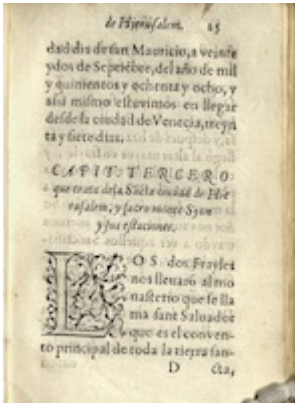 de Hierusalem. 25
dad dia de san Mauricio, a veinte
y dos de Septiẽbre, del año de mil
y quinientos y ochenta y ocho, y
assi mismo estuuimos en llegar
desde la ciudad de Venecia, treyn
ta y siete dias.
CAPIT. TERCERO
que trata de la Sãcta ciudad de Hie
rusalem, y sacro monte Syon
y sus estaciones.
LOS dos Frayles
nos lleuarõ al mo
nasterio que se lla
ma sant Saluador
que es el conuen-
to principal de toda la tierra san-
D cta,